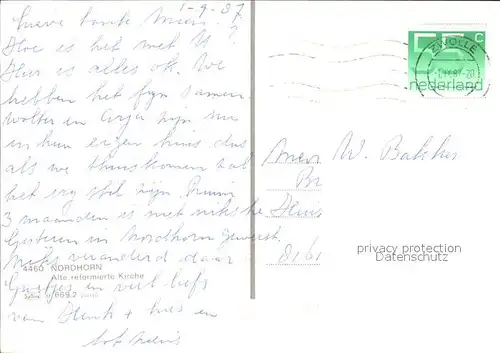 1-9-87
Lieve tante Mien!
Hoe is het met U?
Hier is alles ok. We
hebben het fijn samen
Wolter en Anja zijn nu
in hun eigen huis dus
als we thuiskomen zal
het erg stil zijn. Ruim
3 maanden is niet niks he
Gisteren in Nordhorn geweest.
Niks veranderd daar
Groetjes en veel liefs
van Henk + kus en
tot ziens
4460 NORDHORN
Alte reformierte Kirche
669.2
55 c
nederland
ZWOLLE
W. Bakker
Huis
privacy protection
Datenschutz